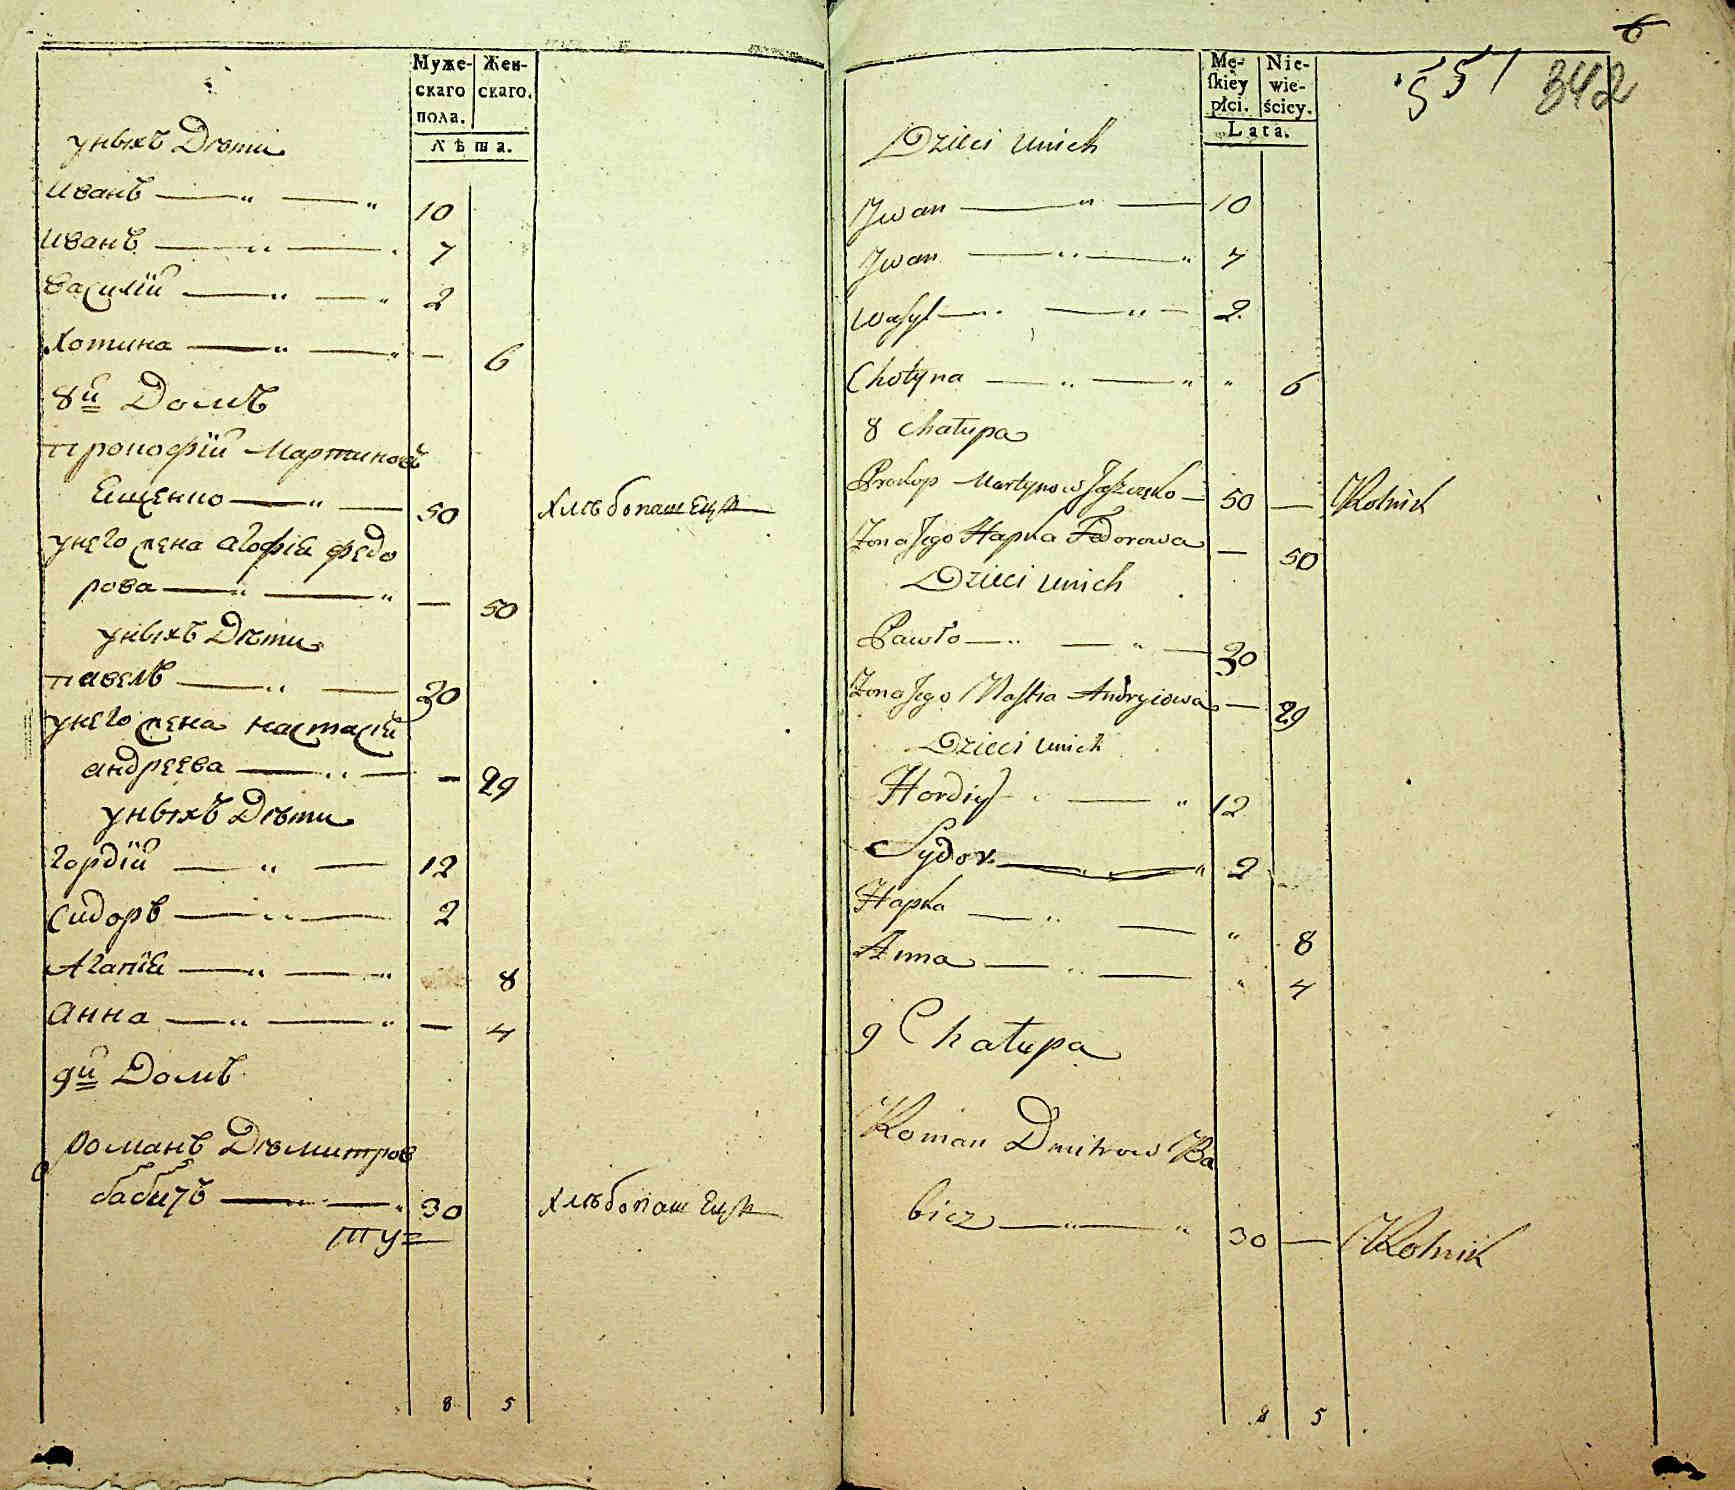 Муже-
скаго
пола.
Жен-
скаго.
Лѣта.
унихъ Дѣти
Иванъ — „ — „ 10
Иванъ — „ — „ 7
Василій — „ — „ 2
Хотина — „ — „ — 6
8й Домъ
Прокофій Мартиновъ
Ященко — „ — 50 хлѣбопашецъ
унего жена Агофія Федо
рова — „ — „ — 50
унихъ Дѣти
Павелъ — „ — 30
унего жена настасія
андреева — „ — — 29
унихъ Дѣти
Гордій — „ — 12
Сидоръ — „ — 2
Агапія — „ — „ 8
Анна — „ — „ — 4
9й Домъ
Романъ Дѣмитровъ
бабичъ — „ — „ 30 хлѣбопашецъ
ту=
8 5
6
551
342
Mę-
ſkiey
płci.
Nie-
wie-
ścicy.
Lata.
Dzieci unich
Jwan — „ — 10
Jwan — „ — „ 7
Wasyl — „ — „ — 2
Chotyna — „ — „ „ 6
8 chałupa
Prokop Martynow Jaszczenko — 50 — Rolnik
Żona Jego Hapka Fedorowa — 50
Dzieci unich
Pawło — „ — „ — 30
Żona Jego Nastia Andryiowa — 29
Dzieci unich
Hordiy „ — „ 12
Sydor — „ — „ 2
Hapka — „ — „ 8
Anna — „ — „ 4
9 Chałupa
Roman Dmitrow Ba
bicz — „ — „ 30 — Rolnik
8 5